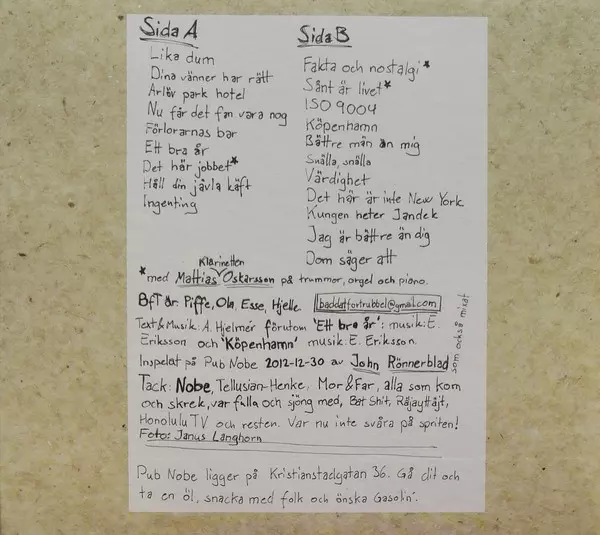 Sida A
Lika dum
Dina vänner har rätt
Arlöv park hotel
Nu får det fan vara nog
Förlorarnas bar
Ett bra år
Det här jobbet*
Håll din jävla käft
Ingenting
Sida B
Fakta och nostalgi*
Sånt är livet*
ISO 9004
Köpenhamn
Bättre män än mig
Snälla, snälla
Värdighet
Det här är inte New York
Kungen heter Jandek
Jag är bättre än dig
Dom säger att
Klarinetten
*med Mattias Oskarsson på trummor, orgel och piano.
BfT är: Piffe, Ola, Esse, Hjelle. baddatfortrubbel@gmail.com
Text&Musik: A. Hjelmér förutom 'Ett bra år': musik: E.
Eriksson och 'Köpenhamn' musik: E. Eriksson.
Inspelat på Pub Nobe 2012-12-30 av John Rönnerblad
som också mixat
Tack: Nobe, Tellusian-Henke, Mor&Far, alla som kom
och skrek, var fulla och sjöng med, Bat Shit, Räjäyttäjt,
Honolulu TV och resten. Var nu inte svåra på spriten!
Foto: Janus Langhorn
Pub Nobe ligger på Kristianstadgatan 36. Gå dit och
ta en öl, snacka med folk och önska 'Gasolin'.